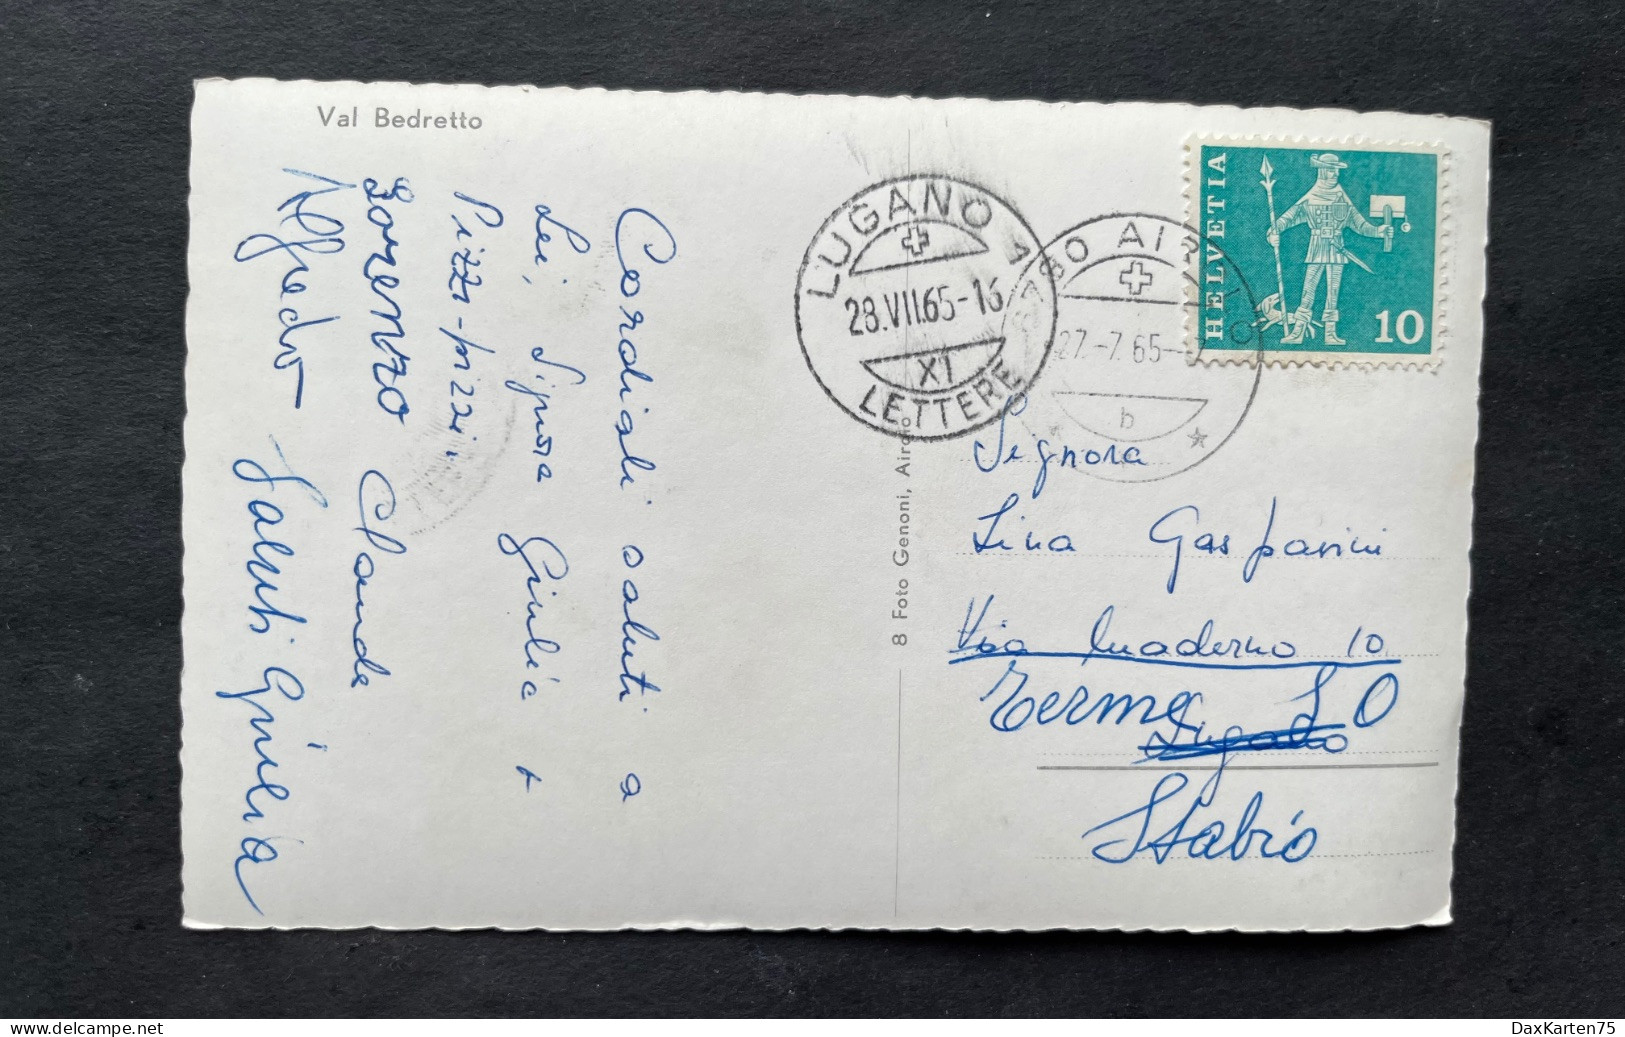 Val Bedretto
Cordiali saluti a
Lei, Signora Giulia +
Pizzi-pizzi
Lorenzo Claude
Alfredo Saluti Giulia
8 Foto Genoni, Airolo
LUGANO 1
28.VII.65-16
XI
LETTERE
6780 AIROLO
27.-7.65-
b
HELVETIA
10
Signora
Lina Gasparini
Via Quaderno 10
Terme S O
Lugano
Stabio
DaxKarten75
www.delcampe.net